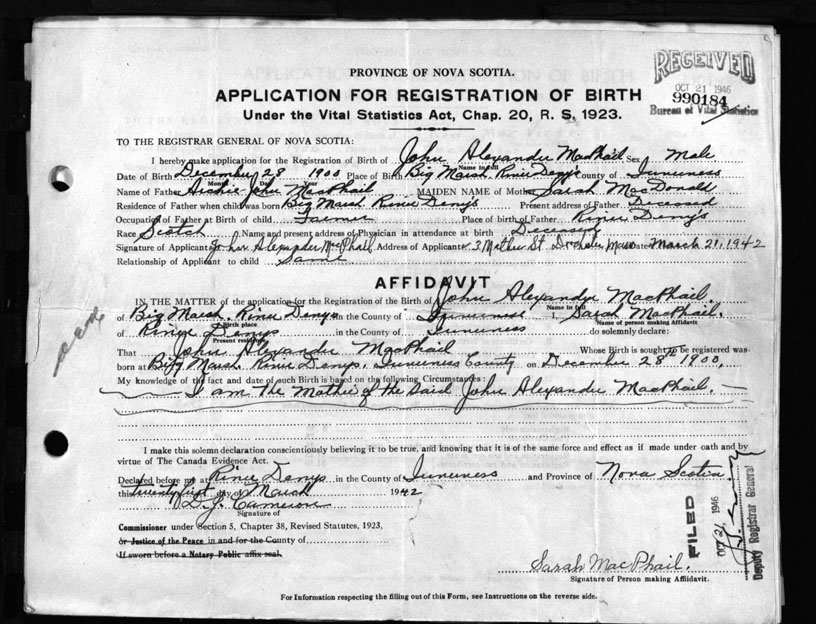 PROVINCE OF NOVA SCOTIA.
RECEIVED
OCT 21 1946
990184
Bureau of Vital Statistics
APPLICATION FOR REGISTRATION OF BIRTH
Under the Vital Statistics Act, Chap. 20, R. S, 1923.
TO THE REGISTRAR GENERAL OF NOVA SCOTIA:
I hereby make application for the Registration of Birth of John Alexander MacPhail Sex Male
Name in full
Date of Birth December 28 1900 Place of Birth Big Marsh River Denys County of Inverness
Month Day Year
Name of Father Archie John MacPhail MAIDEN NAME of Mother Sarah MacDonald
Residence of Father when child was born Big Marsh River Denys Present address of Father Deceased
Occupation of Father at Birth of child Farmer Place of birth of Father River Denys
Race Scotch Name and present address of Physician in attendance at birth Deceased
Signature of Applicant John Alexander MacPhail Address of Applicant 3 Mather St. Dorchester Mass Date March 21, 1942
Relationship of Applicant to child Same
AFFIDAVIT
IN THE MATTER of the application for the Registration of the Birth of John Alexander MacPhail.
Name in full
of Big Marsh, River Denys in the County of Inverness I, Sarah MacPhail.
Birth place Name of person making Affidavit
of River Denys in the County of Inverness do solemnly declare:
Present residence
That John Alexander MacPhail Whose Birth is sought to be registered was
born at Big Marsh River Denys, Inverness County on December 28th 1900,
My knowledge of the fact and date of such Birth is based on the following Circumstances:
I am The Mother of the Said John Alexander MacPhail.
I make this solemn declaration conscientiously believing it to be true, and knowing that it is of the same force and effect as if made under oath and by
virtue of The Canada Evidence Act.
Declared before me at River Denys in the County of Inverness and Province of Nova Scotia
this twenty first day of March 1942
D. J. Cameron
Signature of
Commissioner under Section 5, Chapter 38, Revised Statutes, 1923,
or Justice of the Peace in and for the County of
If sworn before a Notary Public affix seal.
FILED
OCT 21 1946
Deputy Registrar General
Sarah MacPhail.
Signature of Person making Affidavit.
For Information respecting the filling out of this Form, see Instructions on the reverse side.